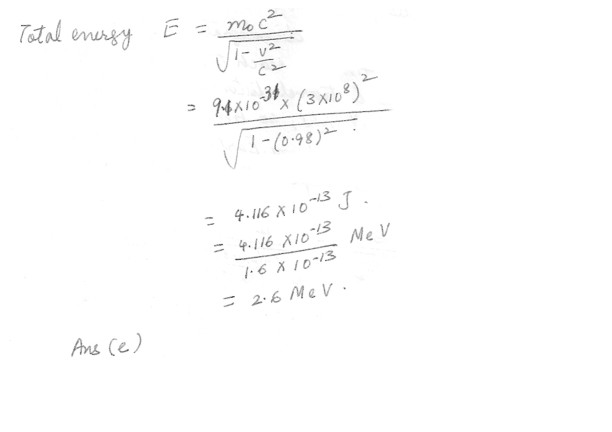 Total energy E = m₀c² / √(1 - v²/c²)
= 9.1×10⁻³¹ × (3×10⁸)² / √(1 - (0.98)²)
= 4.116 × 10⁻¹³ J.
= 4.116 × 10⁻¹³ / 1.6 × 10⁻¹³ MeV
= 2.6 MeV.
Ans (e)